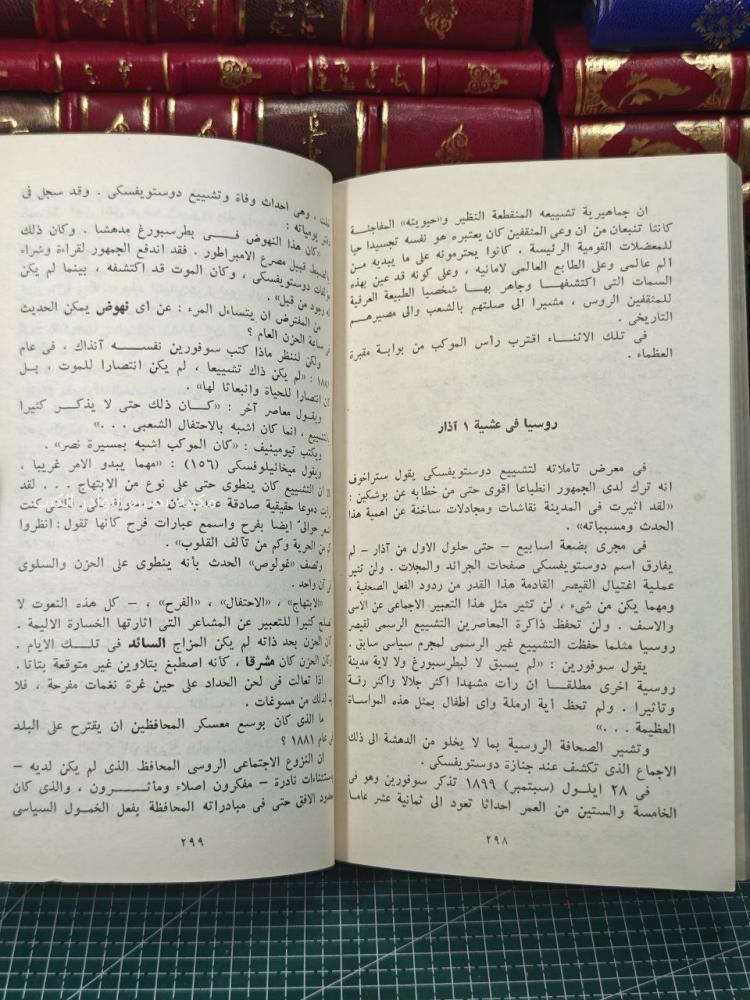 ان جماهيرية تشييعه المنقطعة النظير و«حيويته» المفاجئة
كانتا تنبعان من ان وعى المثقفين كان يعتبره هو نفسه تجسيدا حيا
للمعضلات القومية الرئيسة . كانوا يحترمونه على ما يبديه من
الم عالمي وعلى الطابع العالمي لامانيه ، وعلى كونه قد عين بهذه
السمات التى اكتشفها وجاهر بها شخصيا الطبيعة العرقية
للمثقفين الروس ، مشيرا الى صلتهم بالشعب والى مصيرهم
التاريخى .
فى تلك الاثناء اقترب رأس الموكب من بوابة مقبرة
العظماء .
روسيا فى عشية ١ آذار
فى معرض تأملاته لتشييع دوستويفسكى يقول ستراخوف
انه ترك لدى الجمهور انطباعا اقوى حتى من خطابه عن بوشكين :
«لقد اثيرت فى المدينة نقاشات ومجادلات ساخنة عن اهمية هذا
الحدث ومسبباته» .
فى مجرى بضعة اسابيع – حتى حلول الاول من آذار – لم
يفارق اسم دوستويفسكى صفحات الجرائد والمجلات . ولن تثير
عملية اغتيال القيصر القادمة هذا القدر من ردود الفعل الصحفية ،
ومهما يكن من شىء ، لن تثير مثل هذا التعبير الاجماعى عن الاسى
والاسف . ولن تحفظ ذاكرة المعاصرين التشييع الرسمى لقيصر
روسيا مثلما حفظت التشييع غير الرسمى لمجرم سياسى سابق .
يقول سوفورين : «لم يسبق لا لبطرسبورغ ولا لاية مدينة
روسية اخرى مطلقا ان رأت مشهدا اكثر جلالا واكثر رقة
وتأثيرا . ولم تحظ أية ارملة واى اطفال بمثل هذه المواساة
العظيمة . . .»
وتشير الصحافة الروسية بما لا يخلو من الدهشة الى ذلك
الاجماع الذى تكشف عند جنازة دوستويفسكى .
فى ٢٨ ايلول (سبتمبر) ١٨٩٩ تذكر سوفورين وهو فى
الخامسة والستين من العمر احداثا تعود الى ثمانية عشر عاما
٢٩٨
، وهى احداث وفاة وتشييع دوستويفسكى . وقد سجل فى
يومياته :
«كان هذا النهوض فى بطرسبورغ مدهشا . وكان ذلك
قبيل مصرع الامبراطور . فقد اندفع الجمهور لقراءة وشراء
دوستويفسكى ، وكان الموت قد اكتشفه ، بينما لم يكن
وجود من قبل» .
من المفترض ان يتساءل المرء : عن اى نهوض يمكن الحديث
ساعة الحزن العام ؟
ولكن لننظر ماذا كتب سوفورين نفسه آنذاك ، فى عام
١٨٨١ : «لم يكن ذاك تشييعا ، لم يكن انتصارا للموت ، بل
كان انتصارا للحياة وانبعاثا لها» .
ويقول معاصر آخر : «كان ذلك حتى لا يذكر كثيرا
بالتشييع ، انما كان اشبه بالاحتفال الشعبى . . .»
ويكتب تيومينيف : «كان الموكب اشبه بمسيرة نصر» .
ويقول ميخائيلوفسكى (١٥٦) : «مهما يبدو الامر غريبا ،
الا ان التشييع كان ينطوى حتى على نوع من الابتهاج . . . لقد
رأيت دموعا حقيقية صادقة
حوالى ايضا بفرح واسمع عبارات فرح كأنها تقول : انظروا
كم من الحرية وكم من تآلف القلوب» .
وتصف «غولوص» الحدث بأنه ينطوى على الحزن والسلوى
فى آن واحد .
«الابتهاج» ، «الاحتفال» ، «الفرح» ، – كل هذه النعوت لا
تصلح كثيرا للتعبير عن المشاعر التى اثارتها الخسارة الاليمة .
كان الحزن بحد ذاته لم يكن المزاج السائد فى تلك الايام .
وكان الحزن كان مشرقا ، كأنه اصطبغ بتلاوين غير متوقعة بتاتا .
اذا تعالت فى لحن الحداد على حين غرة نغمات مفرحة ، فلا
لذلك من مسوغات .
ما الذى كان بوسع معسكر المحافظين ان يقترح على البلد
فى عام ١٨٨١ ؟
ان النزوع الاجتماعى الروسى المحافظ الذى لم يكن لديه –
باستثناءات نادرة – مفكرون اصلاء ومأثرون ، والذى كان
محدود الافق حتى فى مبادراته المحافظة بفعل الخمول السياسى
٢٩٩